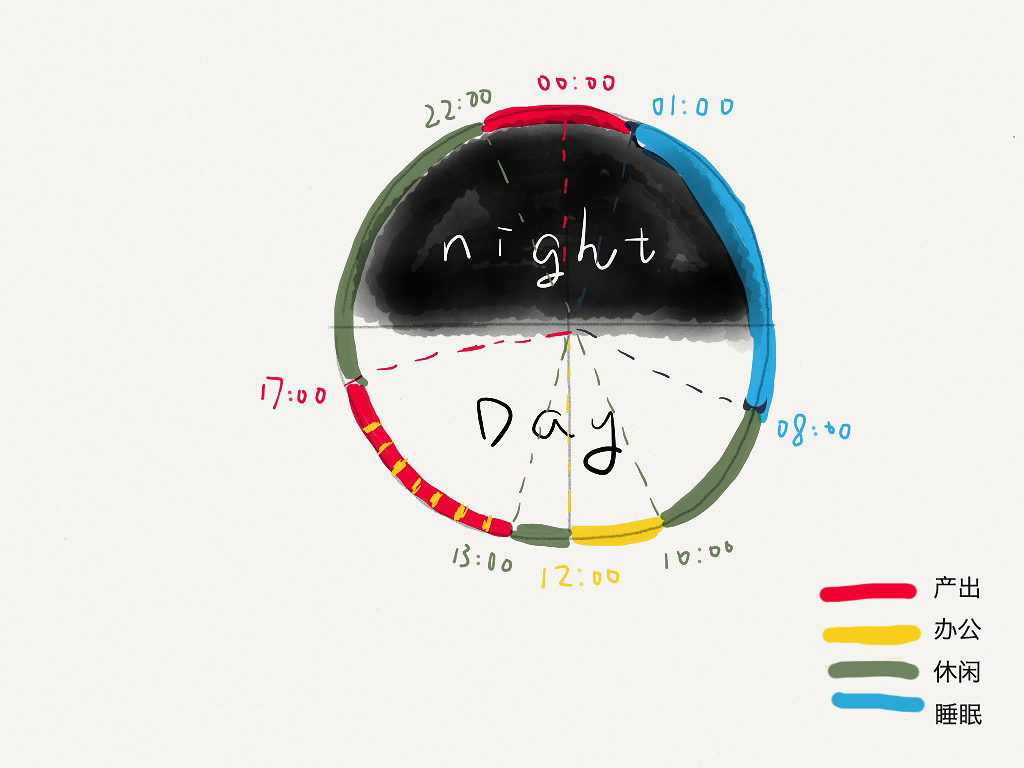 00:00
22:00
01:00
night
17:00
Day
08:00
13:00
12:00
10:00
产出
办公
休闲
睡眠